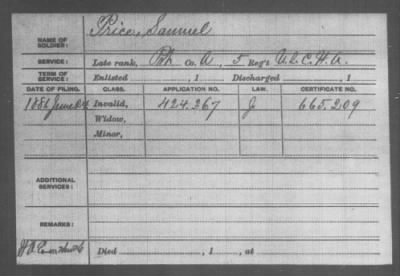 NAME OF SOLDIER: Price, Samuel
SERVICE: Late rank, Pvt Co. A, 5 Reg't U.S.C.H.A.
TERM OF SERVICE: Enlisted , 1 Discharged , 1
DATE OF FILING. CLASS. APPLICATION NO. LAW. CERTIFICATE NO.
1886 June Invalid, 424.267 J 665.209
Widow,
Minor,
ADDITIONAL SERVICES:
REMARKS:
Died , 1 , at